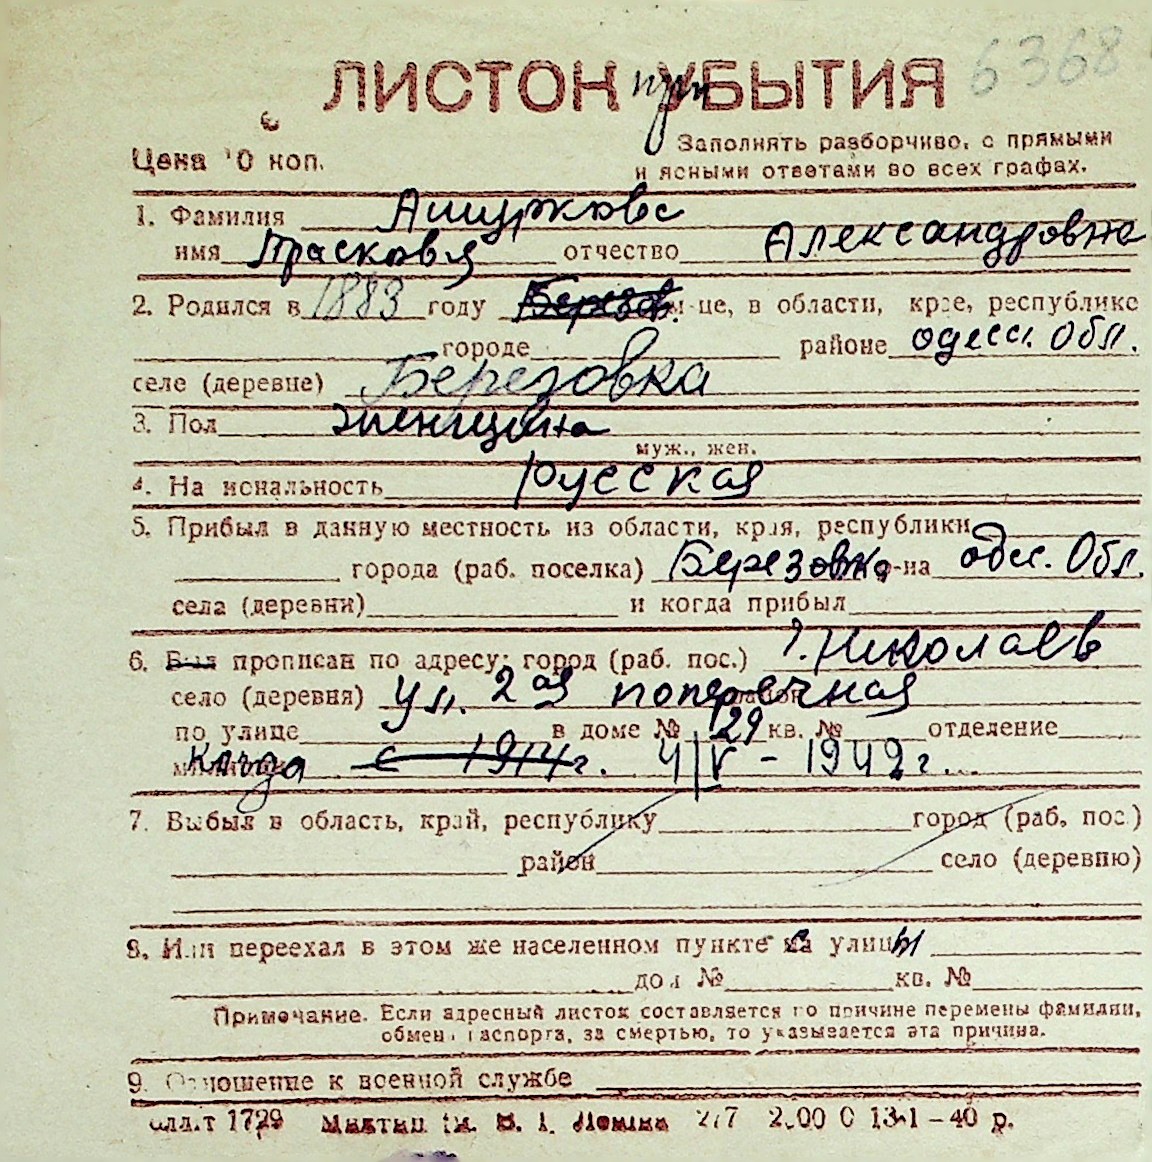 6368
ЛИСТОК при УБЫТИЯ
Цена 10 коп.
Заполнять разборчиво, с прямыми
и ясными ответами во всех графах.
1. Фамилия Ашуркова
имя Прасковья отчество Александровна
2. Родился в 1883 году Березов. м-це, в области, крае, республике
городе районе одесс. Обл.
селе (деревне) Березовка
3. Пол женщина
муж., жен.
4. Национальность русская
5. Прибыл в данную местность из области, края, республики
города (раб. поселка) Березовка р-на одес. Обл.
села (деревни) и когда прибыл
6. Был прописан по адресу: город (раб. пос.) г. Николаев
село (деревня) ул. 2ая поперечная район
по улице в доме № 29 кв. № отделение
милиции когда с 1914 г. 4/IV - 1942 г.
7. Выбыл в область, край, республику город (раб. пос.)
район село (деревню)
8. Или переехал в этом же населенном пункте с улицы
дом № кв. №
Примечание. Если адресный листок составляется по причине перемены фамилии,
обмена паспорта, за смертью, то указывается эта причина.
9. Отношение к военной службе
1729 им. В. І. Леніна 277 2.00 0 13-1-40 р.